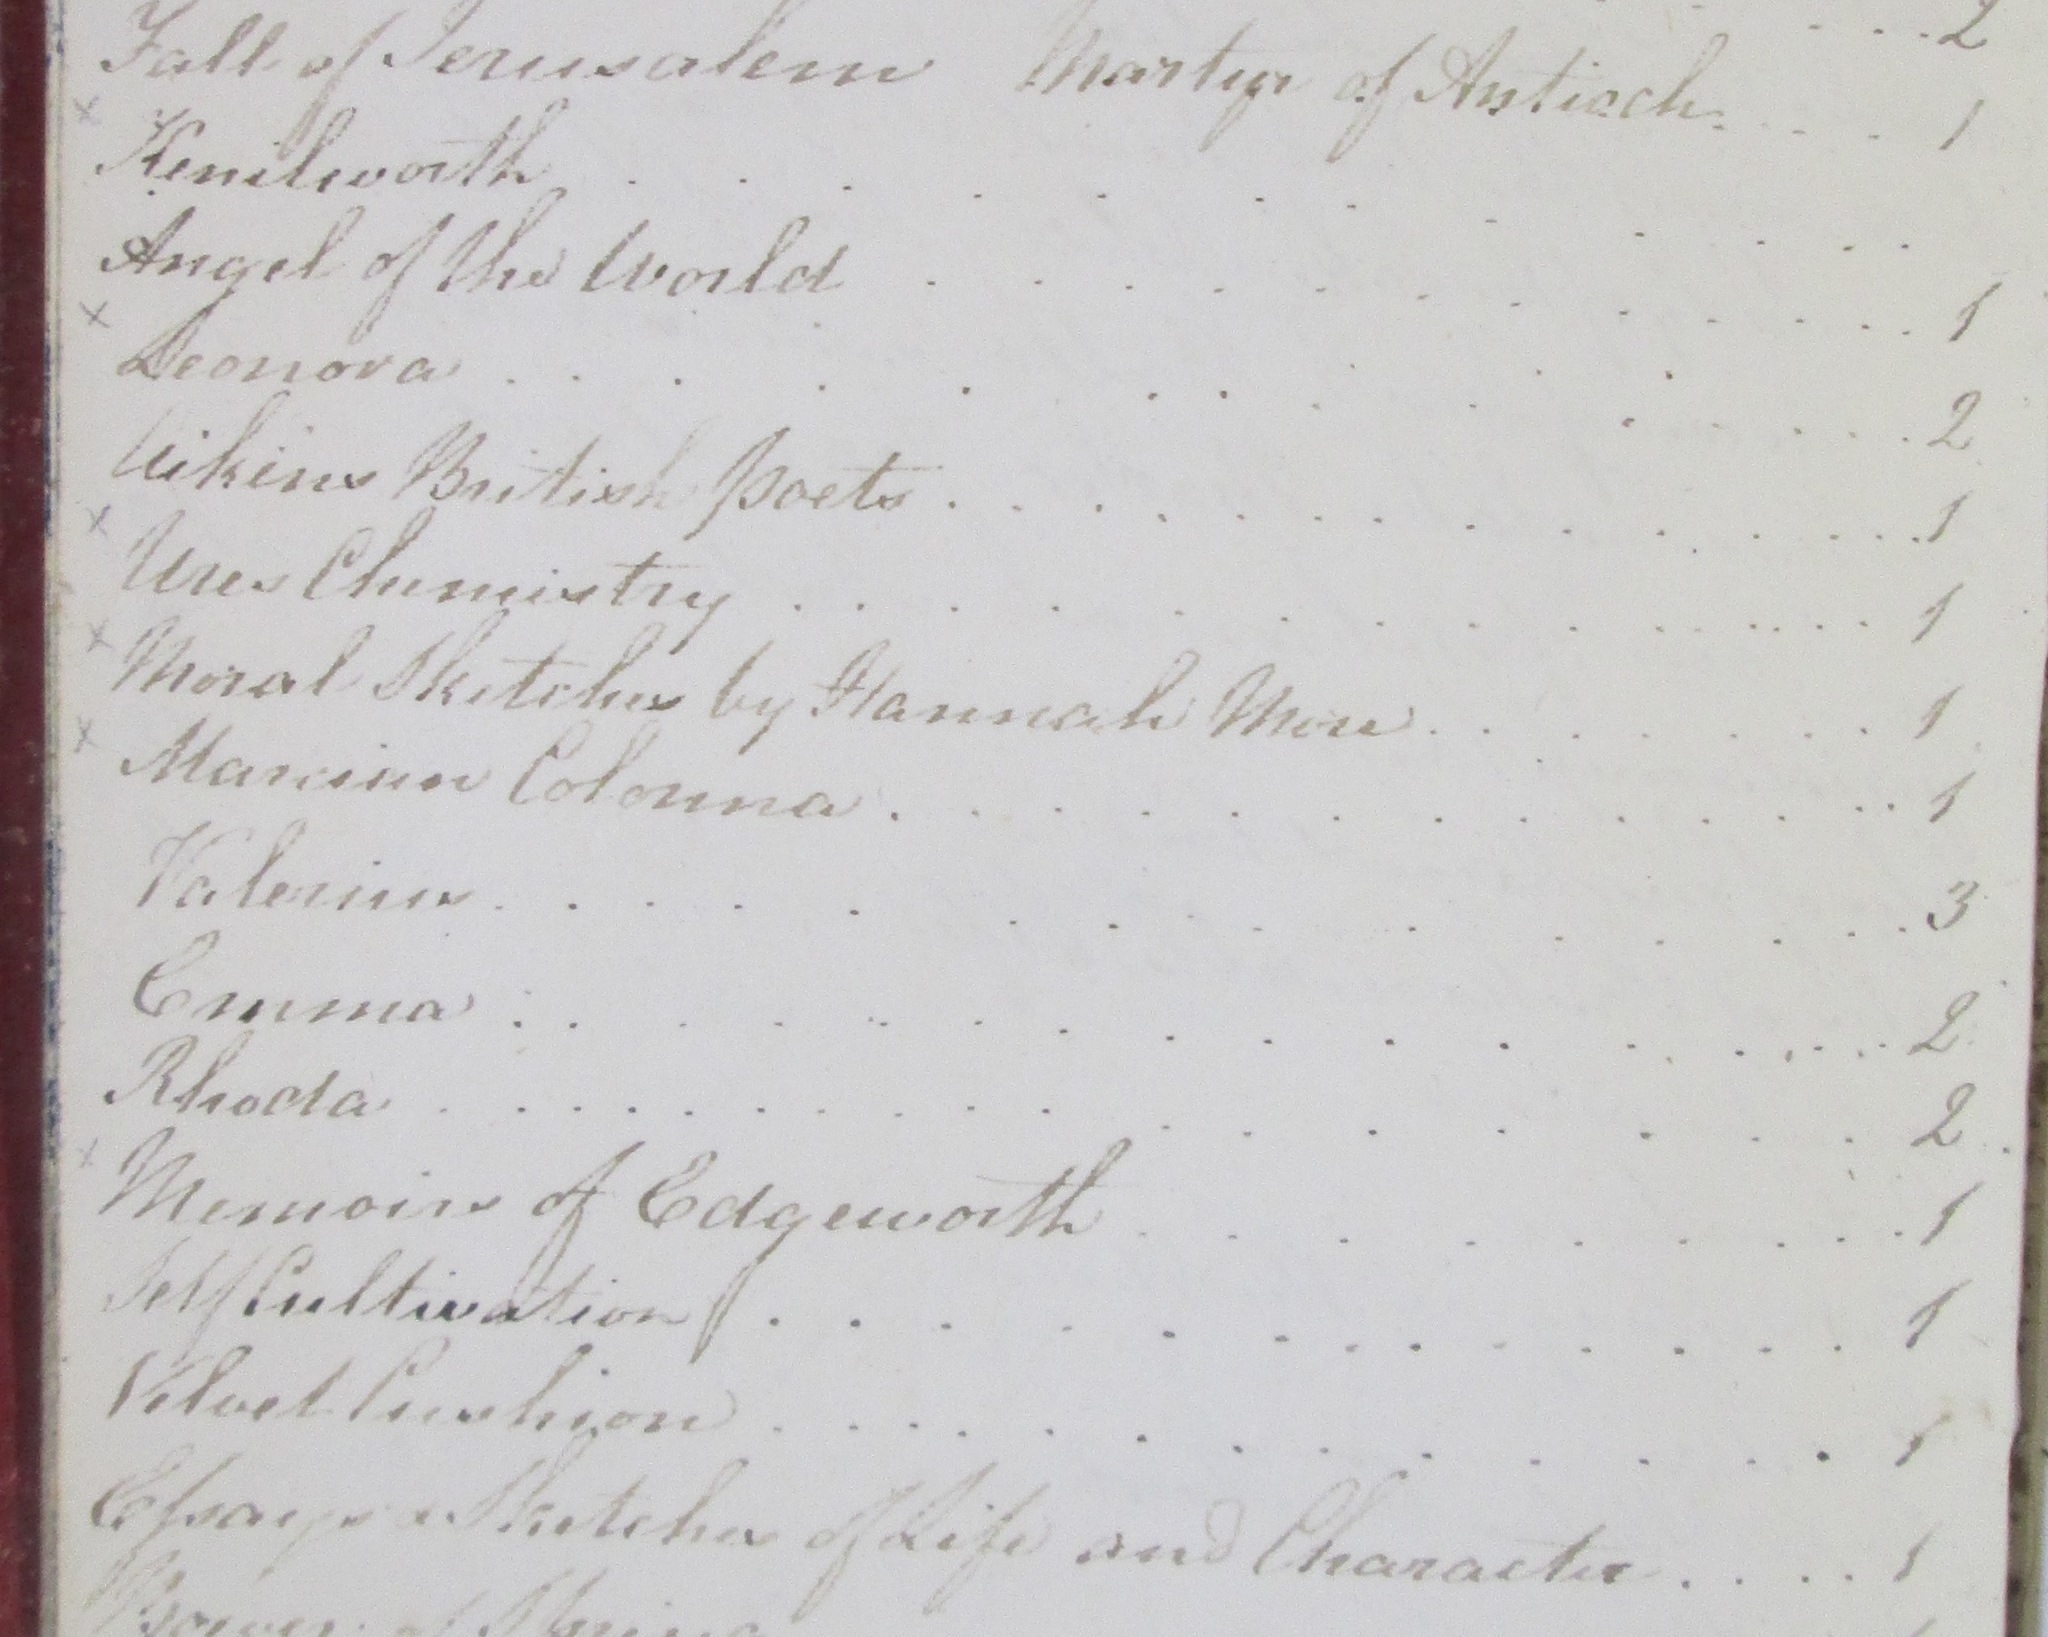 2
Fall of Jerusalem Martyr of Antioch. . . . 1
x
Kenilworth . . . . . . . . . . . . .
Angel of the World . . . . . . . . . . . . . 1
x
Leonora . . . . . . . . . . . . . . . 2
Aikins British Poets . . . . . . . . . . . . . . 1
x
Ures Chemistry . . . . . . . . . . . . . . 1
x
Moral Sketches by Hannah More . . . . . . . 1
x
Marcian Colonna . . . . . . . . . . . . 1
Valerius . . . . . . . . . . . . . . . 3
Emma . . . . . . . . . . . . . . . . 2
Rhoda . . . . . . . . . . . . . . . . 2
x
Memoirs of Edgeworth . . . . . . . . . . 1
Self Cultivation . . . . . . . . . . . . . 1
Velvet Cushion . . . . . . . . . . . . . 1
Essays & Sketches of Life and Character . . . . 1
Bower of Spring